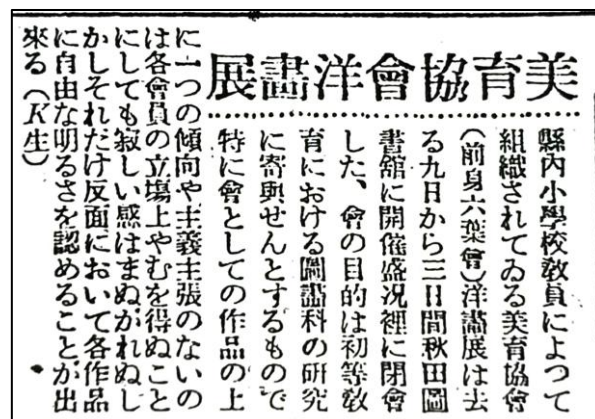 美育協會洋畵展
縣内小學校敎員によつて
組織されてゐる美育協會
(前身六葉會)洋畵展は去
る九日から三日間秋田圖
書舘に開催盛况裡に閉會
した、會の目的は初等敎
育における圖畵科の研究
に寄與せんとするもので
特に會としての作品の上
に一つの傾向や主義主張のないの
は各會員の立塲上やむを得ぬこと
にしても寂しい感はまぬがれぬし
かしそれだけ反面において各作品
に自由な明るさを認めることが出
來る(K生)